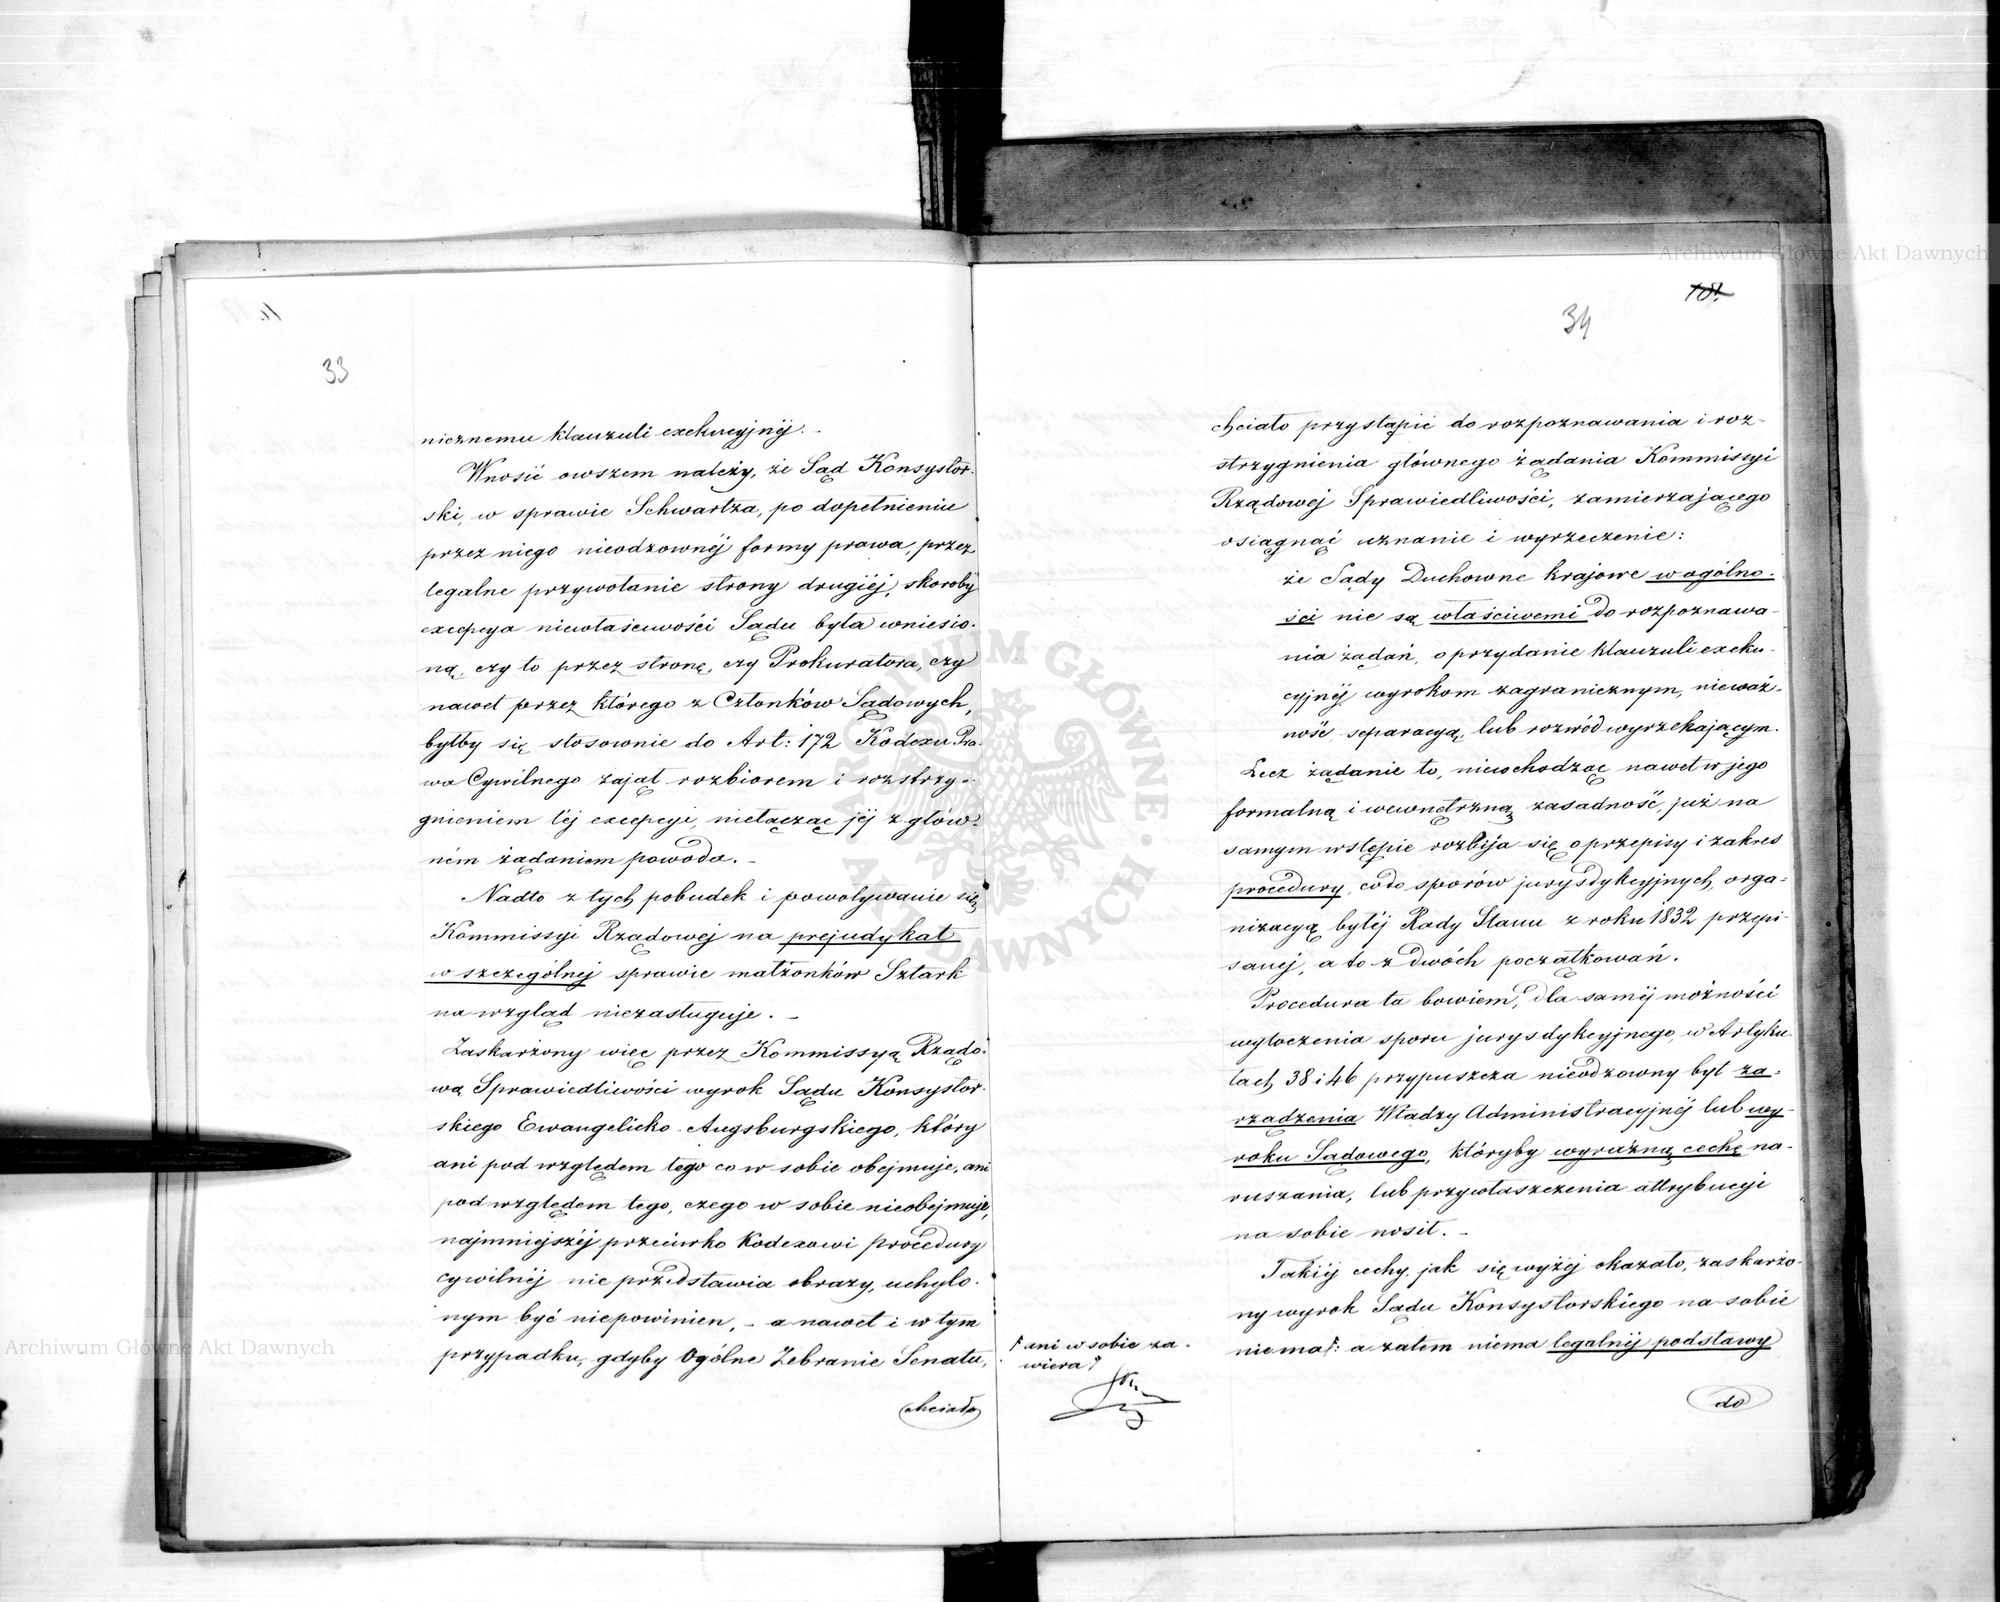 33
nicznemu klauzuli exekucyjnéj. –
Wnosić owszem należy, że Sąd Konsystor-
ski, w sprawie Schwartza, po dopełnieniu
przez niego nieodzownéj formy prawa, przez
legalne przywołanie strony drugiéj, skoroby
excepcya niewłaściwości Sądu była wniesio-
ną, czy to przez stronę, czy Prokuratora, czy
nawet przez którego z Członków Sądowych,
byłby się stosownie do Art: 172 Kodexu Pra-
wa Cywilnego zajął rozbiorem i rozstrzy-
gnieniem téj excepcyi, niełącząc jéj z głów-
ném żądaniem powoda. –
Nadto z tych pobudek i powoływanie się
Kommissyi Rządowej na prejudykat
w szczególnej sprawie małżonków Sztark
na wzgląd niezasługuje. –
Zaskarżony więc przez Kommissyą Rządo-
wą Sprawiedliwości wyrok Sądu Konsystor-
skiego Ewangelicko-Augsburgskiego, który
ani pod względem tego co w sobie obejmuje, ani
pod względem tego, czego w sobie nieobejmuje,
najmniejszéj przeciwko Kodexowi procedury
cywilnéj nie przedstawia obrazy, uchylo-
nym być niepowinien, – a nawet i w tym
przypadku, gdyby Ogólne Zebranie Senatu,
chciało
34
chciało przystąpić do rozpoznawania i roz-
strzygnienia głównego żądania Kommissyi
Rządowej Sprawiedliwości, zamierzającego
osiągnąć uznanie i wyrzeczenie:
że Sądy Duchowne krajowe w ogólno-
ści nie są właściwemi do rozpoznawa-
nia żądań, o przydanie klauzuli exeku-
cyjnéj wyrokom zagranicznym, nieważ-
ność, separacyą, lub rozwód wyrzekającym.
Lecz żądanie to, niewchodząc nawet w jego
formalną i wewnętrzną zasadność, już na
samym wstępie rozbija się o przepisy i zakres
procedury, co do sporów jurysdykcyjnych, orga-
nizacyą byłéj Rady Stanu z roku 1832 przepi-
sanej, a to z dwóch początkowań.
Procedura ta bowiem, dla saméj możności
wytoczenia sporu jurysdykcyjnego, w Artyku-
łach 38 i 46 przypuszcza nieodzowny byt za-
rządzenia Władzy Administracyjnéj lub wy-
roku Sądowego, któryby wyraźną cechę na-
ruszania, lub przywłaszczenia attrybucyi
na sobie nosił. –
Takiéj cechy, jak się wyżéj okazało, zaskarżo-
ny wyrok Sądu Konsystorskiego na sobie
niema: a zatem niema legalnéj podstawy
ani w sobie za-
wiera
do
Archiwum Główne Akt Dawnych
Archiwum Główne Akt Dawnych
ARCHIWUM GŁÓWNE AKT DAWNYCH